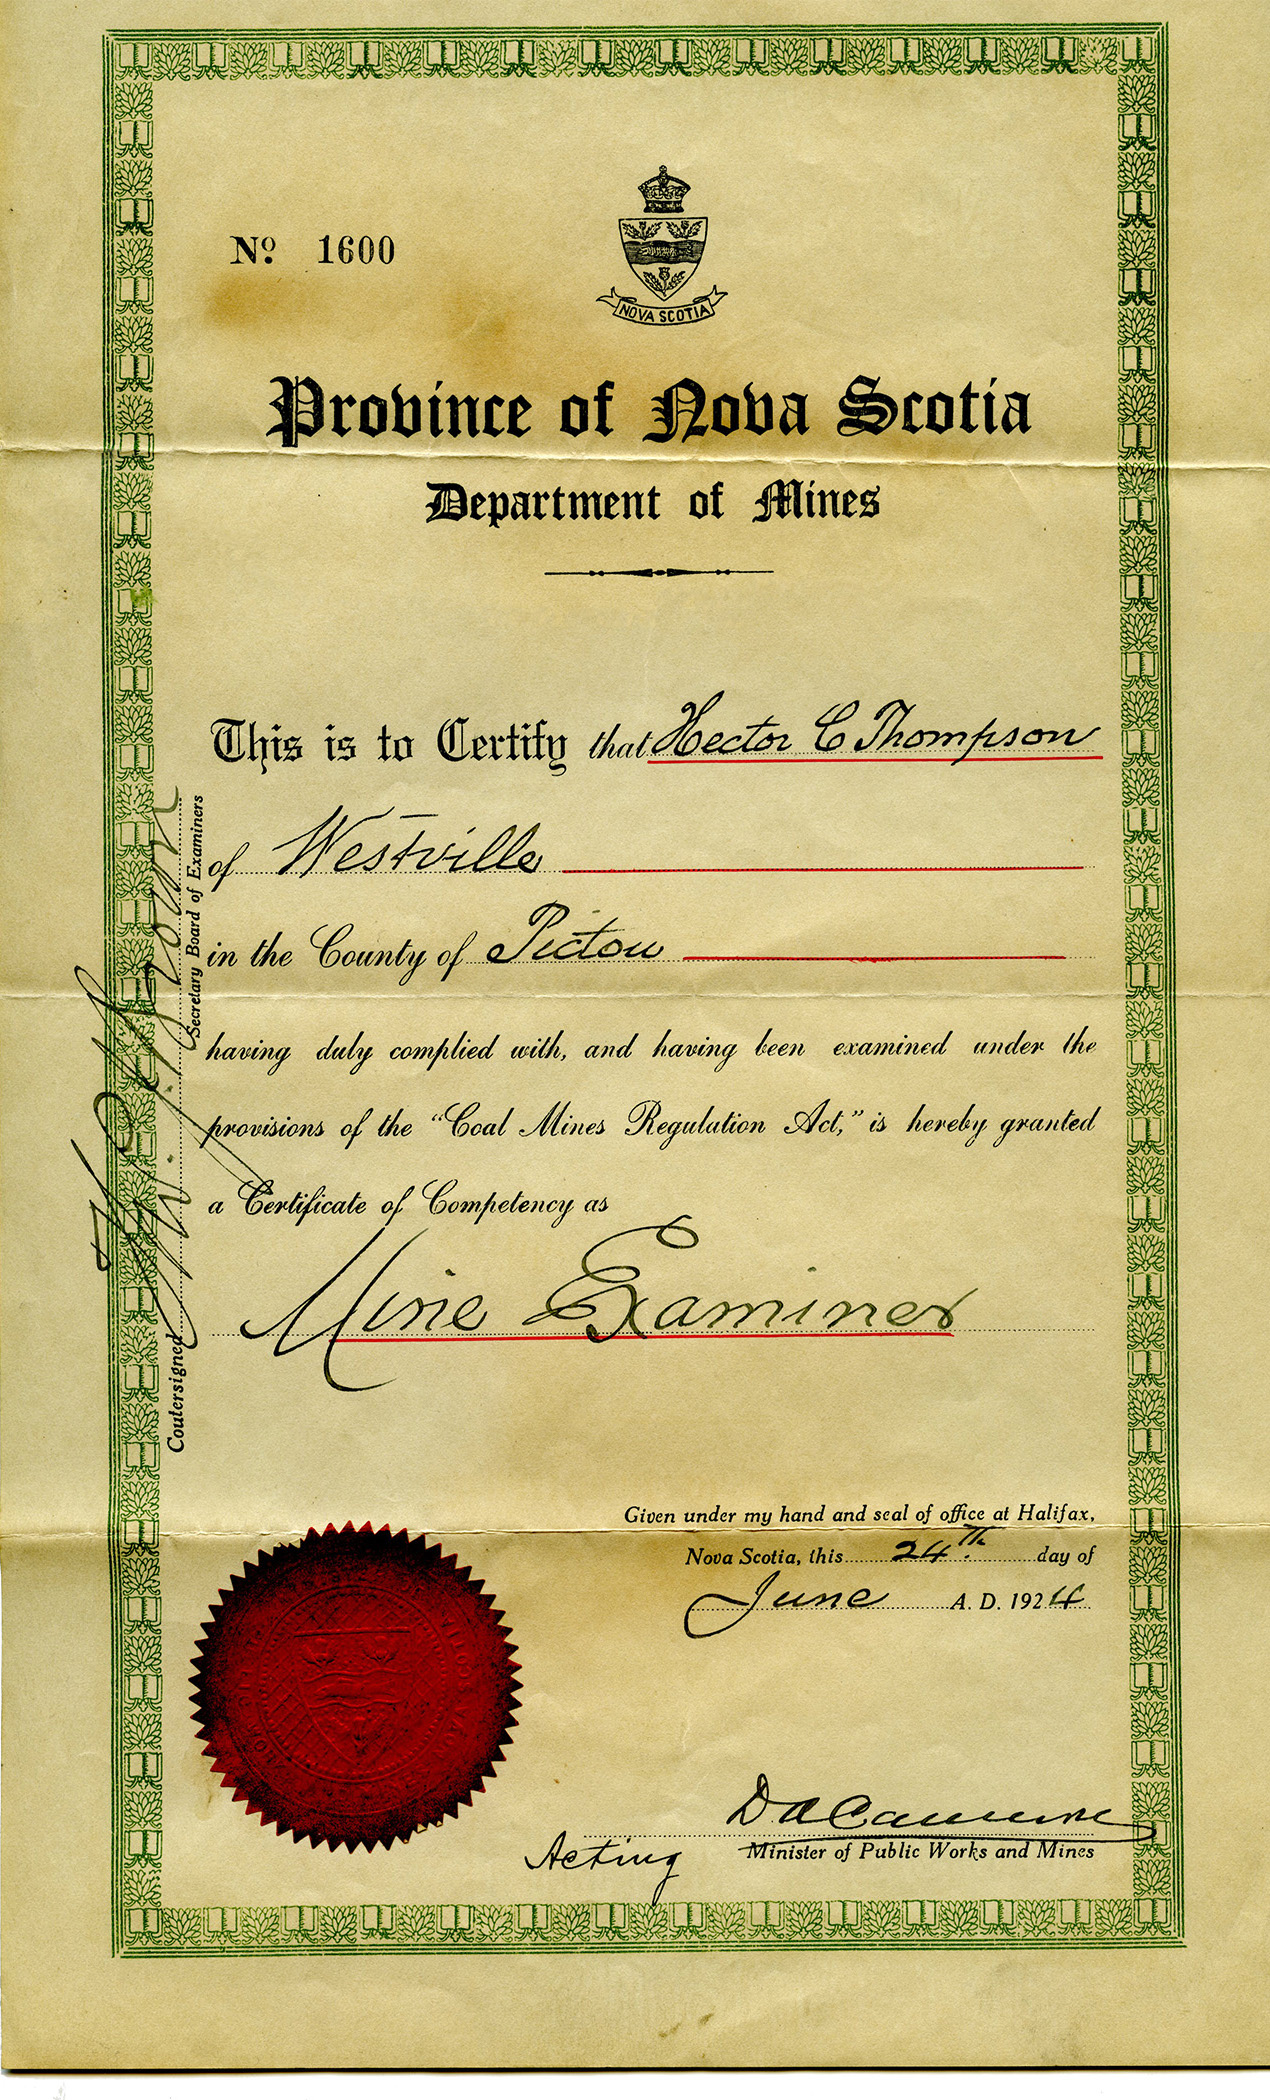 No. 1600
NOVA SCOTIA
Province of Nova Scotia
Department of Mines
This is to Certify that Hector C Thompson
of Westville
in the County of Pictou
having duly complied with, and having been examined under the
provisions of the "Coal Mines Regulation Act," is hereby granted
a Certificate of Competency as
Mine Examiner
Coutersigned
Secretary Board of Examiners
Given under my hand and seal of office at Halifax,
Nova Scotia, this 24th. day of
June A. D. 1924
D A Cameron
Acting Minister of Public Works and Mines